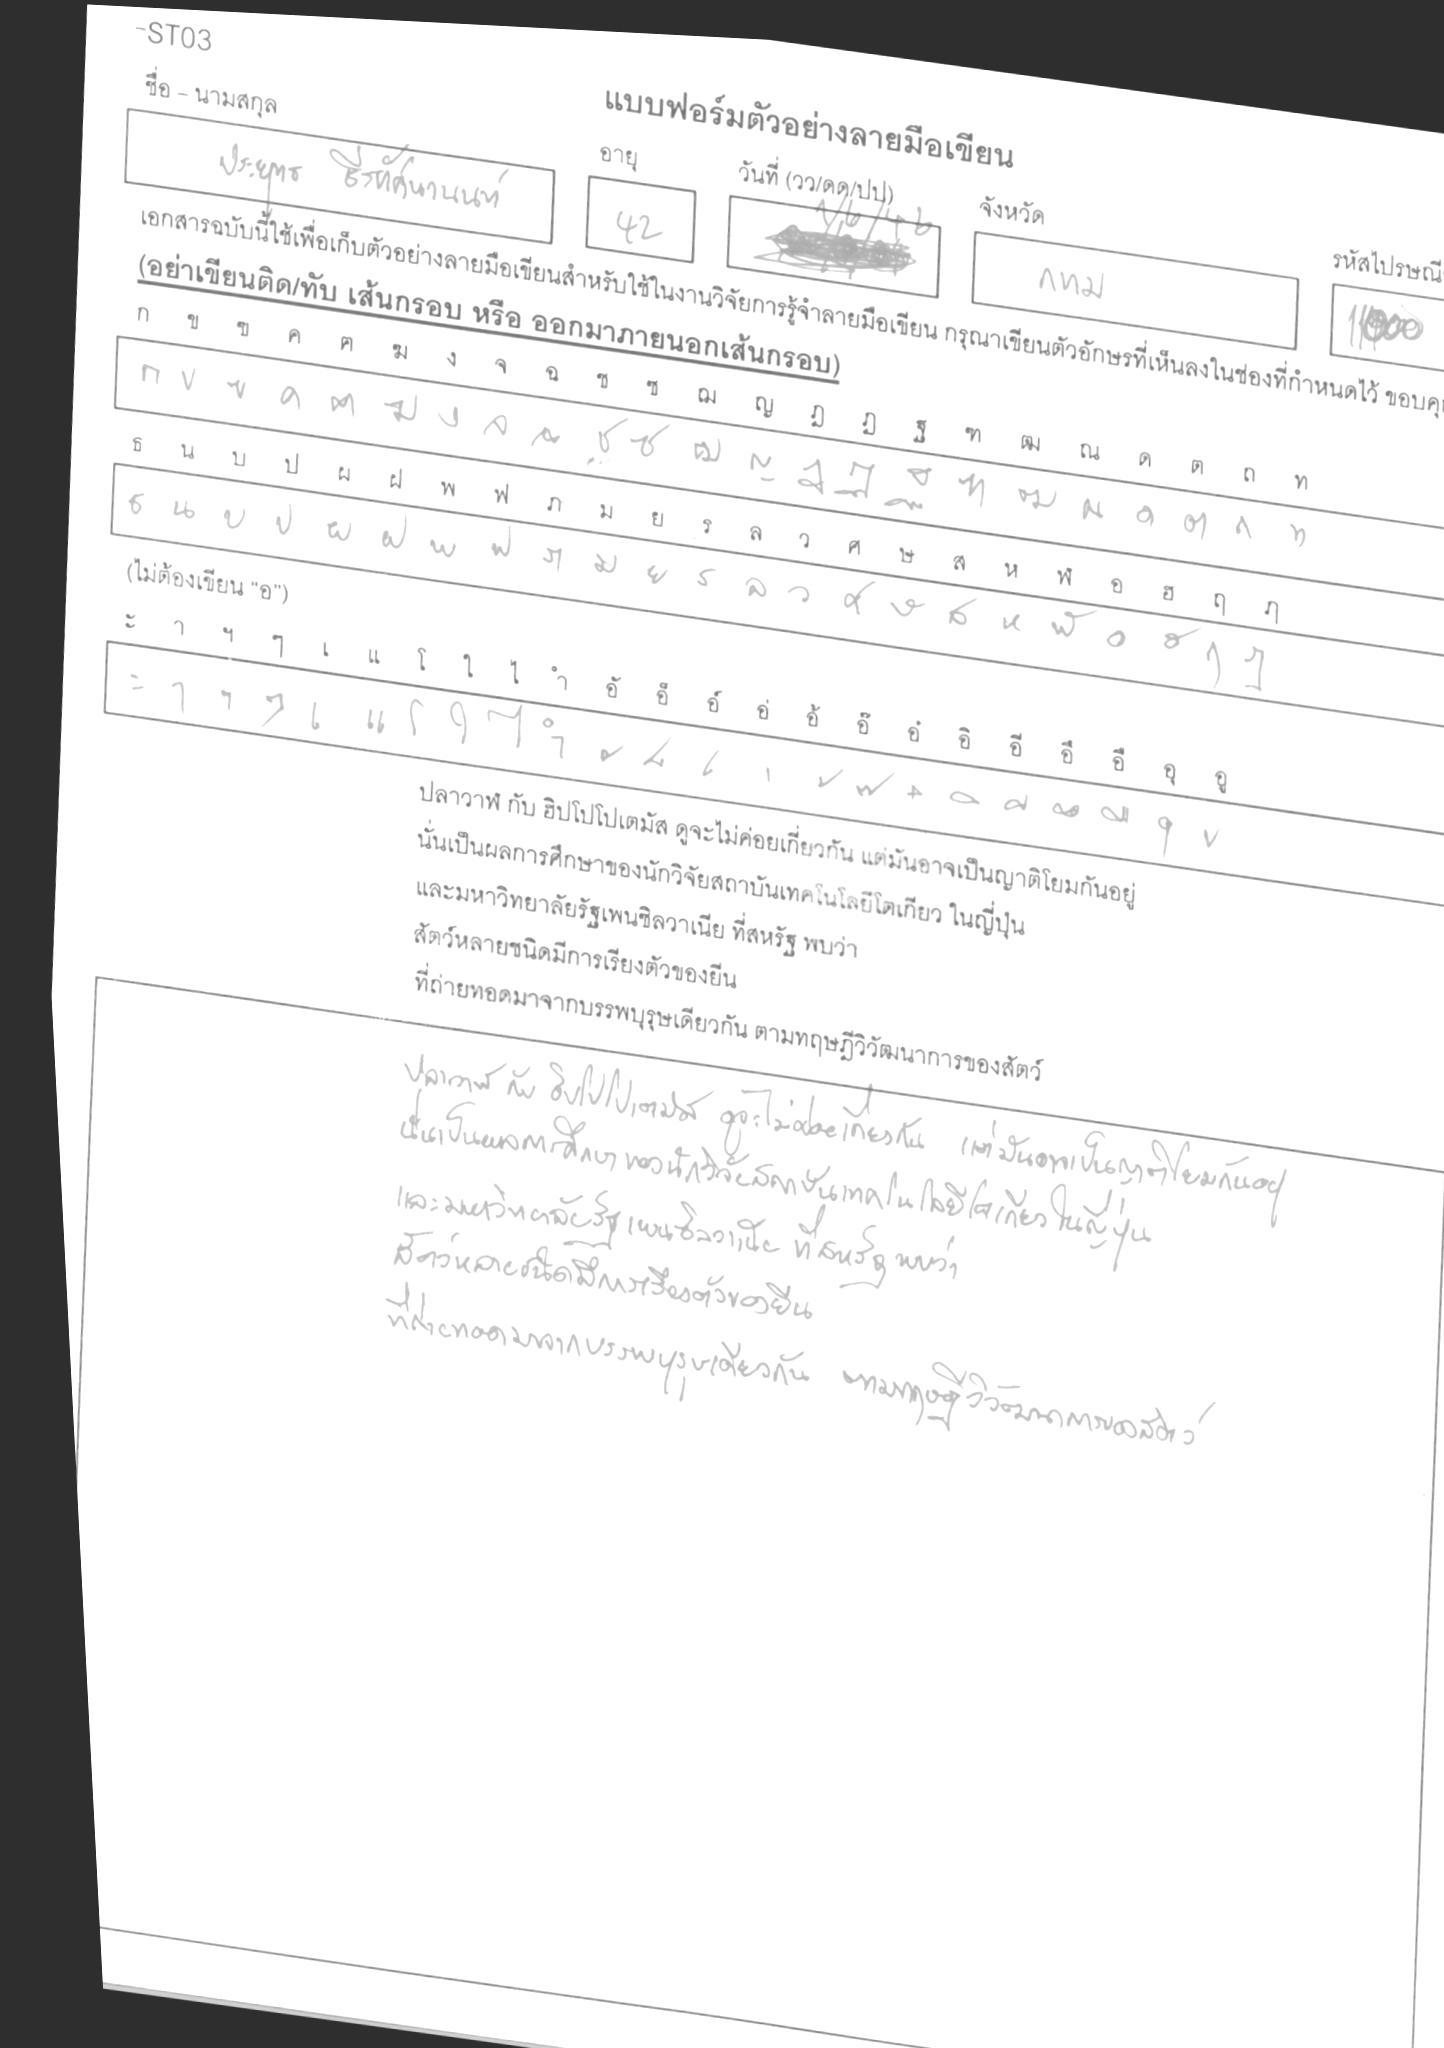 -ST03
แบบฟอร์มตัวอย่างลายมือเขียน
ชื่อ – นามสกุล
อายุ
วันที่ (วว/ดด/ปป)
จังหวัด
รหัสไปรษณี
ประยุทธ
42
กทม
เอกสารฉบับนี้ใช้เพื่อเก็บตัวอย่างลายมือเขียนสำหรับใช้ในงานวิจัยการรู้จำลายมือเขียน กรุณาเขียนตัวอักษรที่เห็นลงในช่องที่กำหนดไว้ ขอบคุ
(อย่าเขียนติด/ทับ เส้นกรอบ หรือ ออกมาภายนอกเส้นกรอบ)
ก ข ฃ ค ฅ ฆ ง จ ฉ ช ซ ฌ ญ ฎ ฏ ฐ ฑ ฒ ณ ด ต ถ ท
ก ข ฃ ค ฅ ฆ ง จ ฉ ช ซ ฌ ญ ฎ ฏ ฐ ฑ ฒ ณ ด ต ถ ท
ธ น บ ป ผ ฝ พ ฟ ภ ม ย ร ล ว ศ ษ ส ห ฬ อ ฮ ฤ ฦ
ธ น บ ป ผ ฝ พ ฟ ภ ม ย ร ล ว ศ ษ ส ห ฬ อ ฮ ฤ ฦ
(ไม่ต้องเขียน "อ")
ะ า ฯ ๆ เ แ โ ใ ไ ำ อั อ็ อ์ อ่ อ้ อ๊ อ๋ อิ อี อึ อื อุ อู
ะ า ฯ ๆ เ แ โ ใ ไ ำ ั ็ ์ ่ ้ ๊ ๋ ิ ี ึ ื ุ ู
ปลาวาฬ กับ ฮิปโปโปเตมัส ดูจะไม่ค่อยเกี่ยวกัน แต่มันอาจเป็นญาติโยมกันอยู่
นั่นเป็นผลการศึกษาของนักวิจัยสถาบันเทคโนโลยีโตเกียว ในญี่ปุ่น
และมหาวิทยาลัยรัฐเพนซิลวาเนีย ที่สหรัฐ พบว่า
สัตว์หลายชนิดมีการเรียงตัวของยีน
ที่ถ่ายทอดมาจากบรรพบุรุษเดียวกัน ตามทฤษฎีวิวัฒนาการของสัตว์
ปลาวาฬ กับ ฮิปโปโปเตมัส ดูจะไม่ค่อยเกี่ยวกัน แต่มันอาจเป็นญาติโยมกันอยู่
นั่นเป็นผลการศึกษาของนักวิจัยสถาบันเทคโนโลยีโตเกียว ในญี่ปุ่น
และมหาวิทยาลัยรัฐเพนซิลวาเนีย ที่สหรัฐ พบว่า
สัตว์หลายชนิดมีการเรียงตัวของยีน
ที่ถ่ายทอดมาจากบรรพบุรุษเดียวกัน ตามทฤษฎีวิวัฒนาการของสัตว์